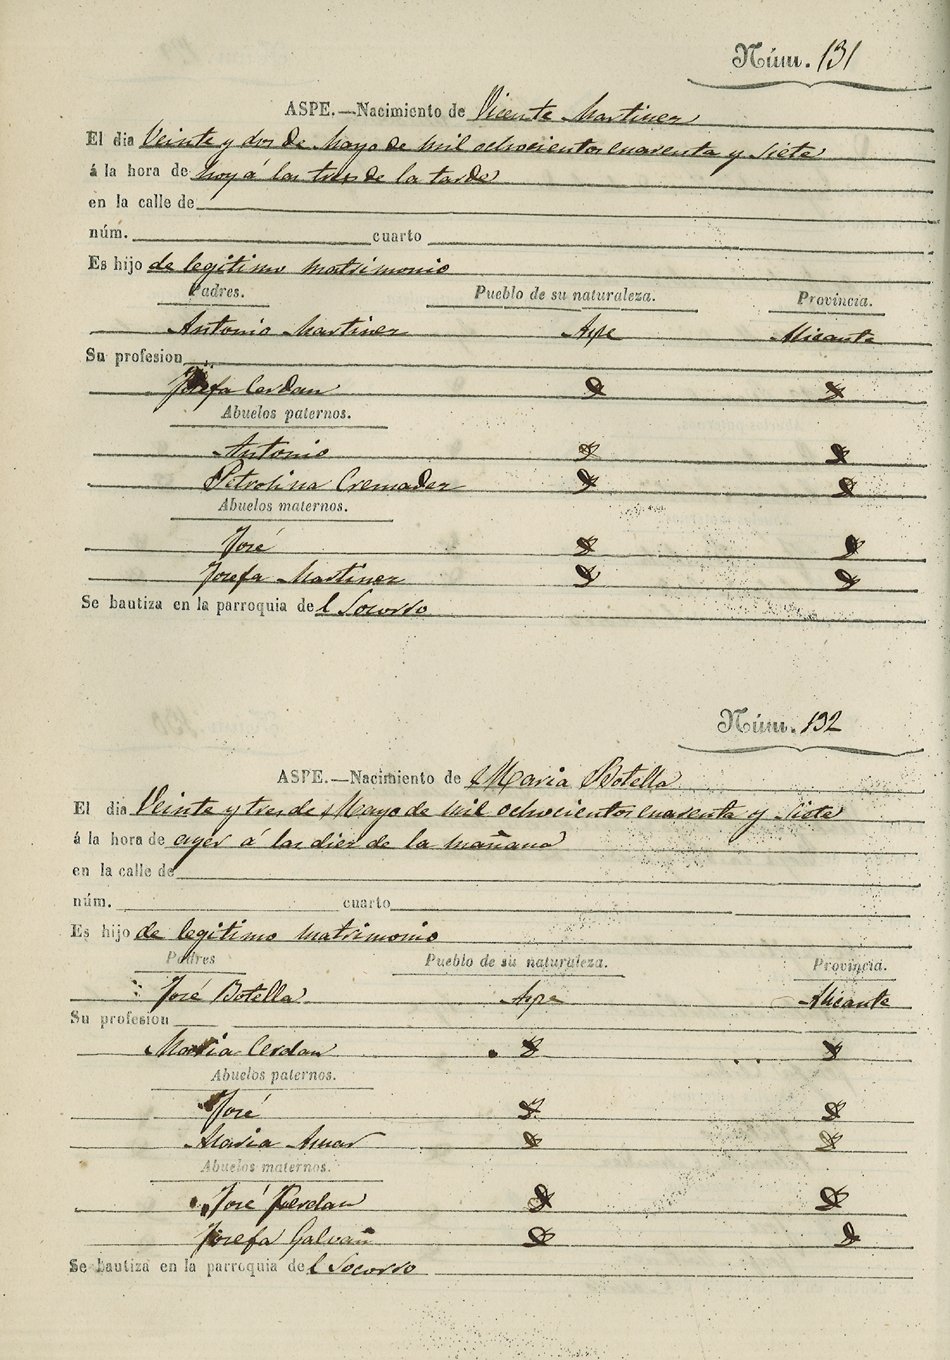 Núm. 131
ASPE.—Nacimiento de Vicente Martinez
El dia Veinte y dos de Mayo de mil ochocientos cuarenta y siete
á la hora de hoy á las tres de la tarde
en la calle de
núm. cuarto
Es hijo de legitimo matrimonio
Padres. Pueblo de su naturaleza. Provincia.
Antonio Martinez Aspe Alicante
Su profesion
Josefa Cerdan
Abuelos paternos.
Antonio
Petrolina Cremades
Abuelos maternos.
José
Josefa Martinez
Se bautiza en la parroquia del Socorro
Núm. 132
ASPE.—Nacimiento de Maria Botella
El dia Veinte y tres de Mayo de mil ochocientos cuarenta y siete
á la hora de ayer á las diez de la mañana
en la calle de
núm. cuarto
Es hijo de legitimo matrimonio
Padres Pueblo de su naturaleza. Provincia.
José Botella Aspe Alicante
Su profesion
Maria Cerdan
Abuelos paternos.
José
Maria
Abuelos maternos.
José Cerdan
Josefa Galvañ
Se bautiza en la parroquia del Socorro